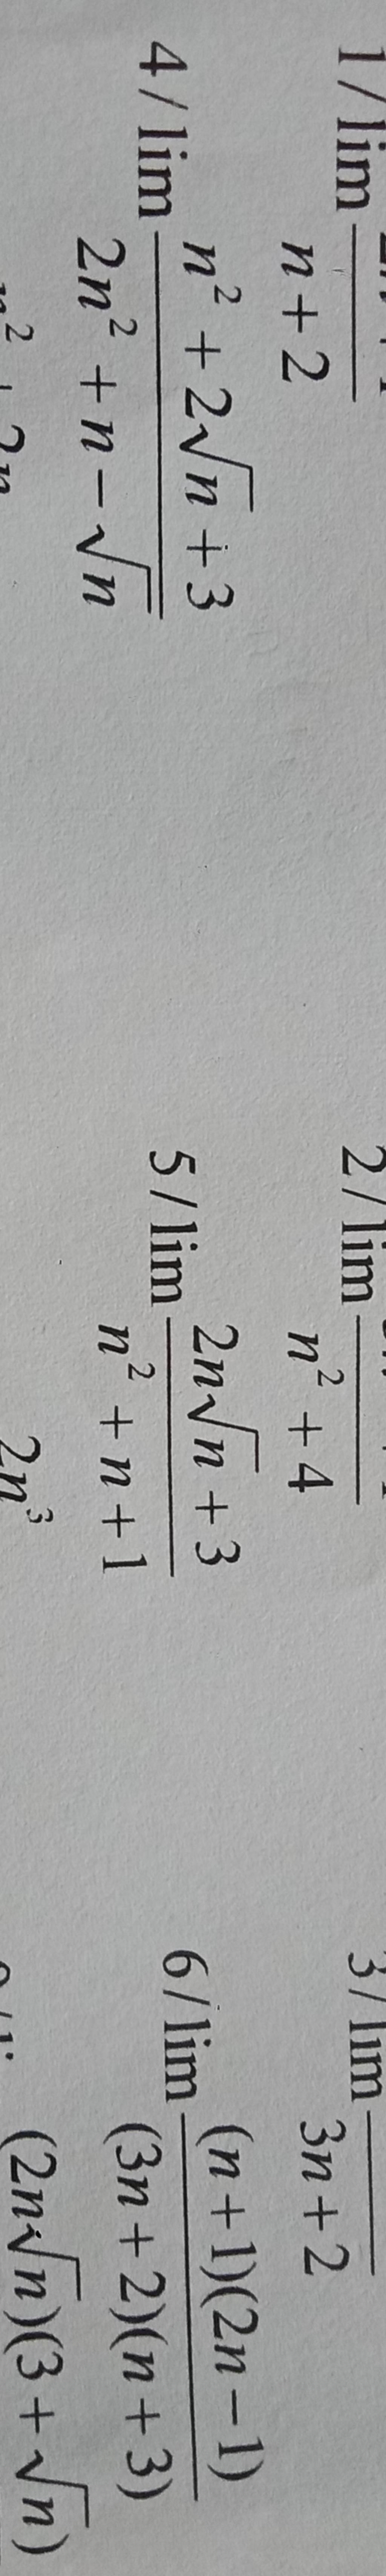 1/ lim n + 2 2/ lim n² + 4 3/ lim 3n + 2
4/ lim (n² + 2√n + 3)/(2n² + n − √n) 5/ lim (2n√n + 3)/(n² + n + 1) 6/ lim ((n + 1)(2n − 1))/((3n + 2)(n + 3))
2n³ (2n√n)(3 + √n)